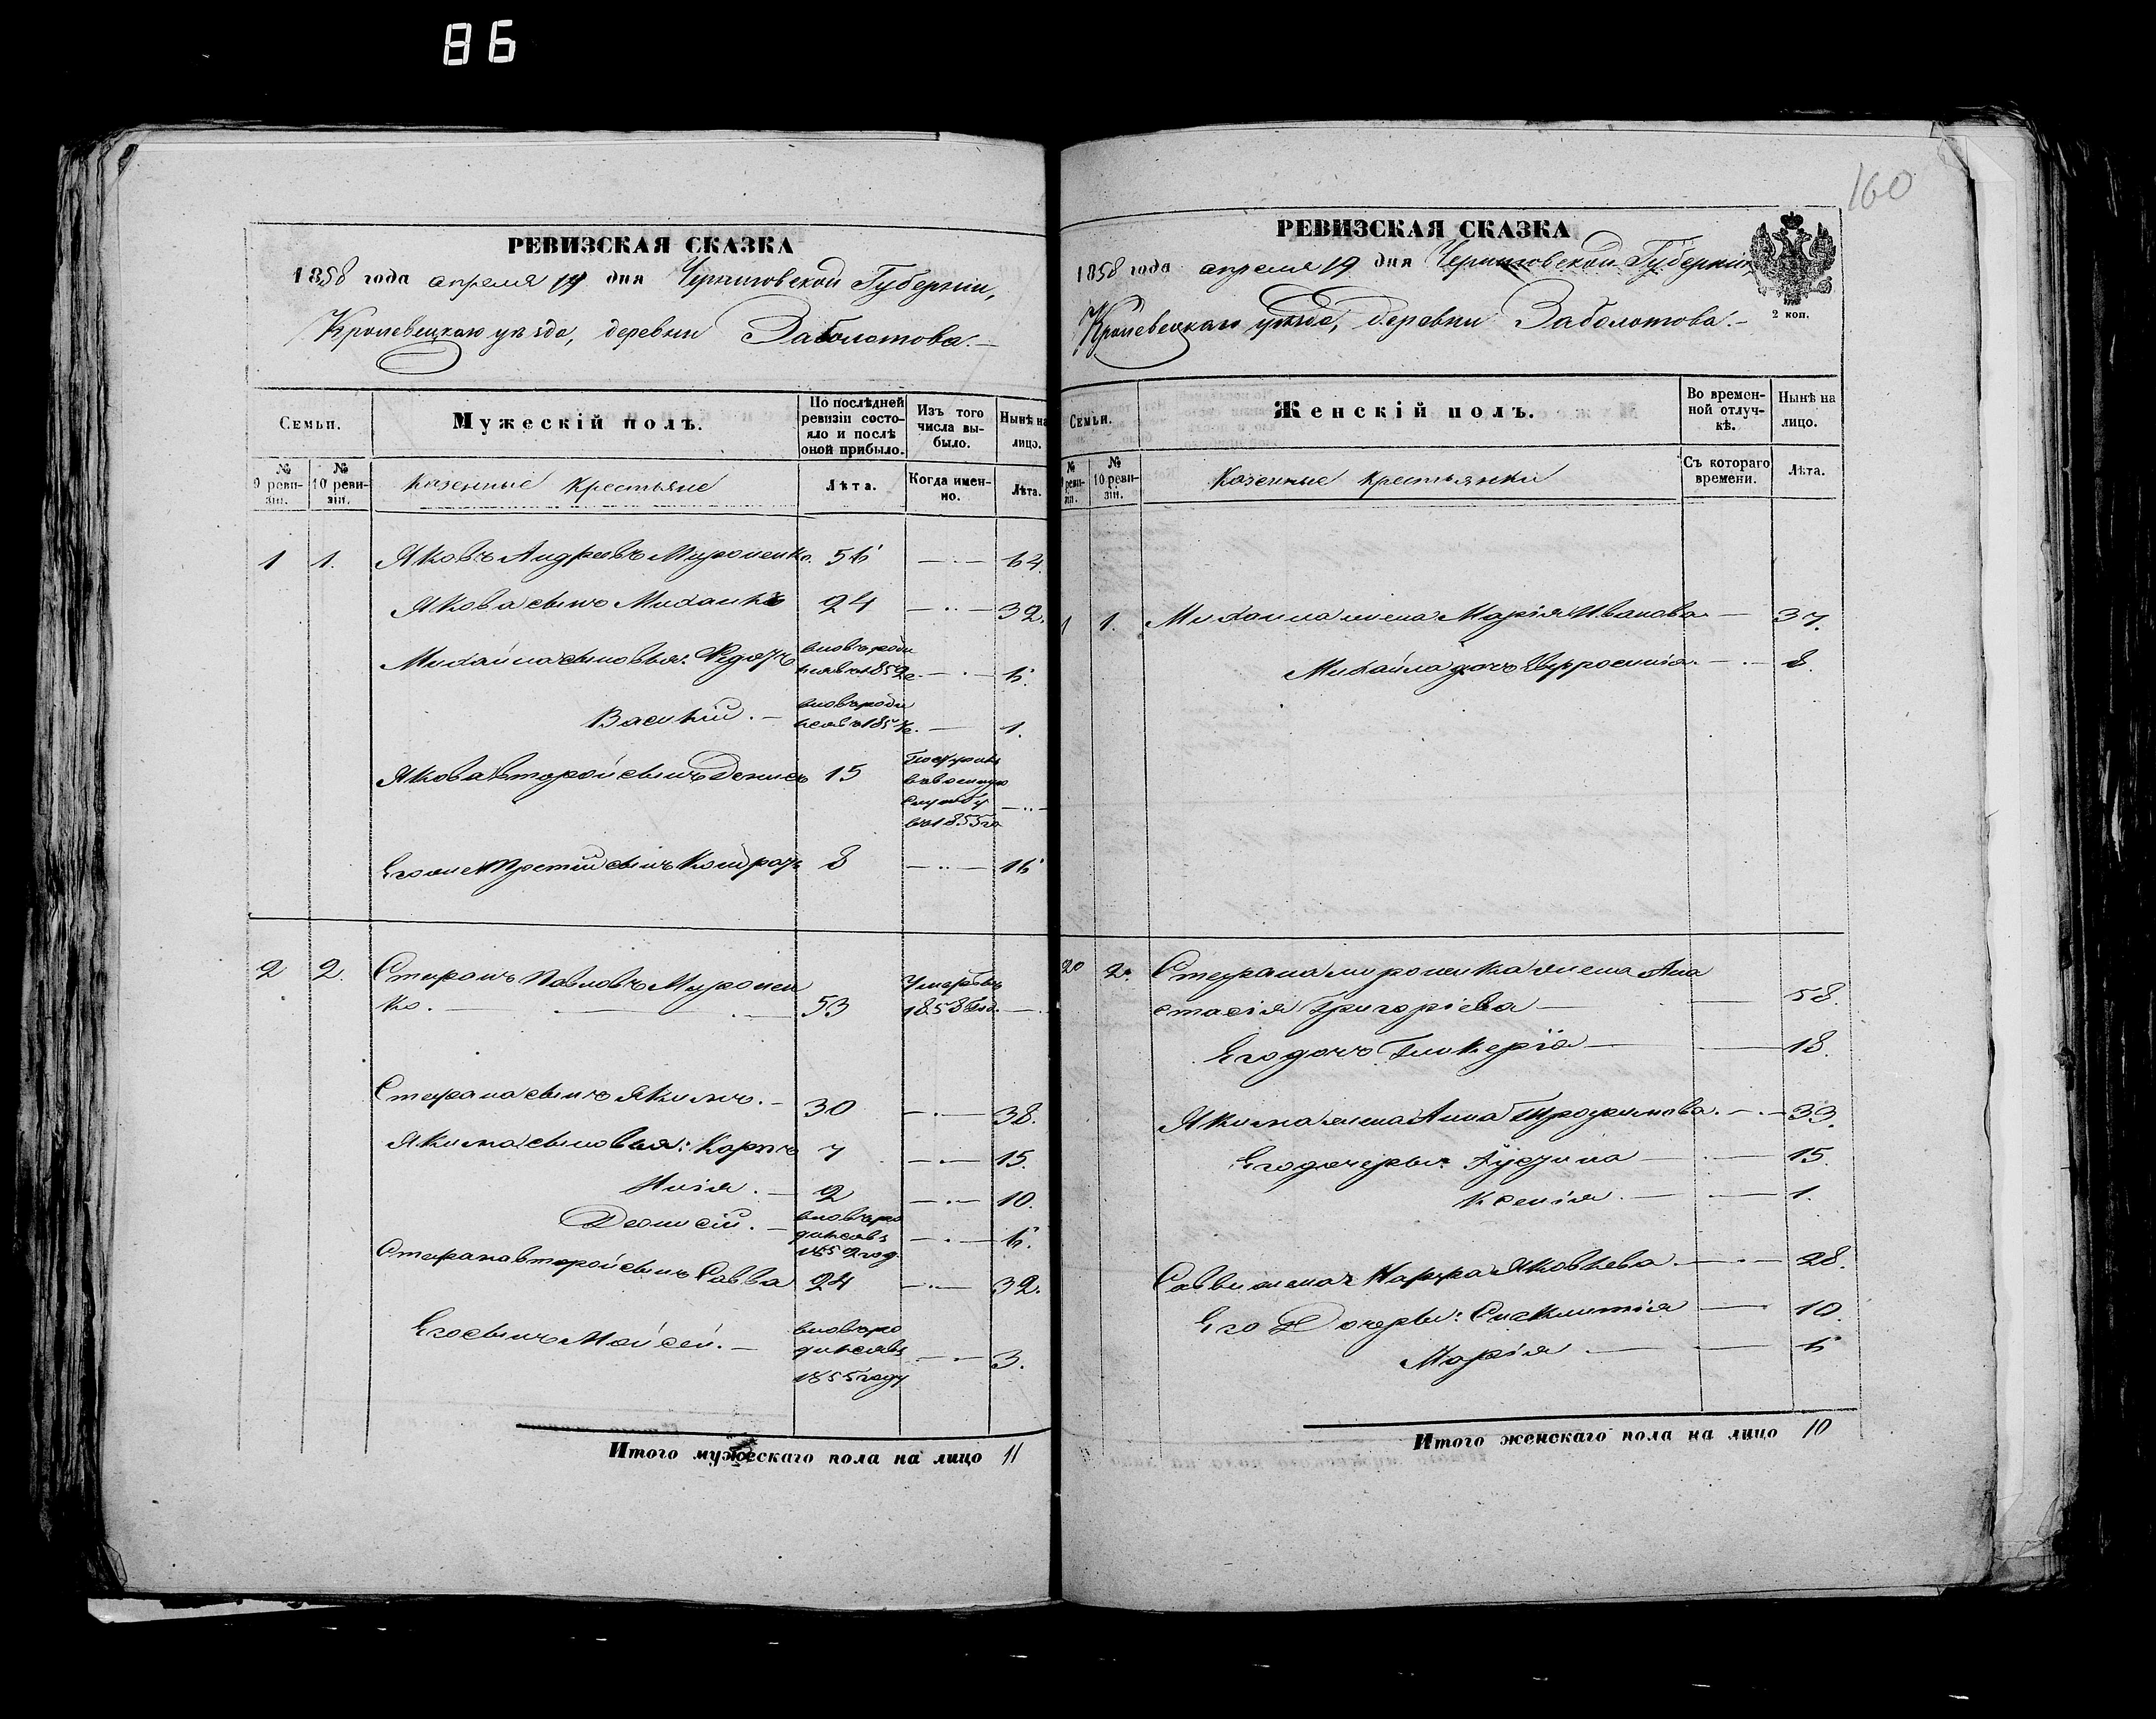 86
160
РЕВИЗСКАЯ СКАЗКА
1858 года апреля 19 дня Черниговской Губерніи,
Кролевецкаго уѣзда, деревни Заболотова.
Семьи.
Мужескій полъ.
По послѣдней ревизіи состояло и послѣ оной прибыло.
Изъ того числа выбыло.
Нынѣ на лицо.
№ 9 ревизіи.
№ 10 ревизіи.
Казенные Крестьяне
Лѣта.
Когда именно.
Лѣта.
1 1. Яковъ Андреевъ Мироненко. 56 64.
Якова сынъ Михаилъ 24 32.
Михайла сыновья: Федоръ вновь роди лся въ 1852 г. 6.
Василій. вновь роди лся въ 1857 г. 1.
Якова второй сынъ Денисъ 15 въ военную службу въ 1855 го
Его же Третій сынъ Кондратъ 8 16
2 2. Стефанъ Павловъ Миронен
ко. 53 Умеръ въ 1858 год.
Стефана сынъ Якимъ. 30 38.
Якима сыновья: Карпъ 7 15.
Илія. 2 10.
Деонисій. вновь ро дился въ 1852 год. 6.
Стефана второй сынъ Савва 24 32.
Его сынъ Моисей. вновь ро дился въ 1855 году 3.
Итого мужескаго пола на лицо 11
РЕВИЗСКАЯ СКАЗКА
1858 года апреля 19 дня Черниговской Губерніи
Кролевецкаго уѣзда, деревни Заболотова.
2 коп.
Семьи.
Женскій полъ.
Во временной отлучкѣ.
Нынѣ на лицо.
№ 9 ревизіи.
№ 10 ревизіи.
Казенные крестьянки
Съ котораго времени.
Лѣта.
1 1. Михаила жена Марія Иванова 37.
Михайла дочь Еуфросинія. 8.
2 2. Стефана мироненка жена Ана
стасія Григоріева 58.
Его дочь Гликерія 18.
Якима жена Анна Трофимова. 33.
Его дочери: 15.
Ксенія. 1.
Саввы жена Марфа Яковлева. 28.
Его Дочери: Синклитія 10.
Марія 6
Итого женскаго пола на лицо 10